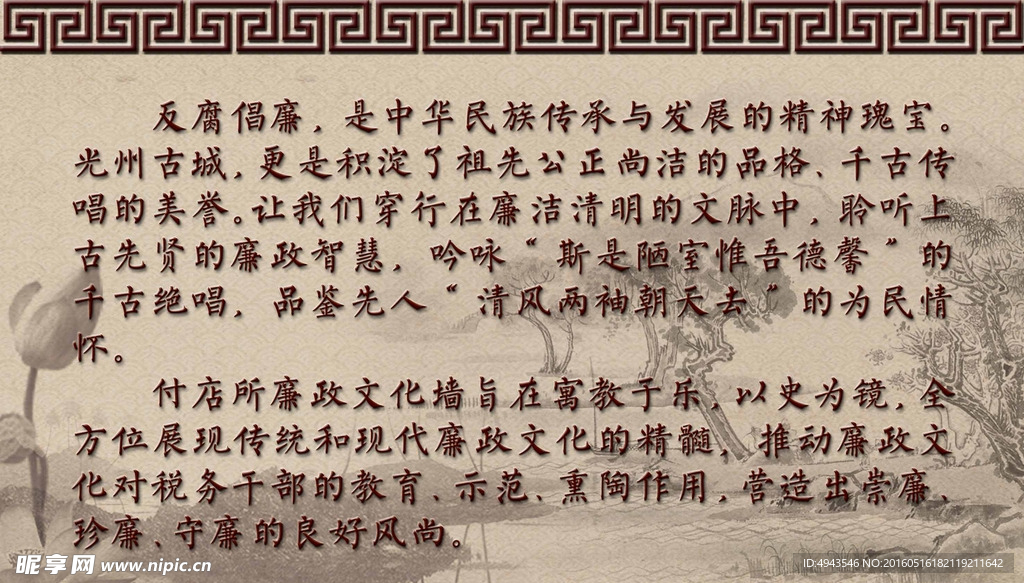 反腐倡廉，是中华民族传承与发展的精神瑰宝。
光州古城，更是积淀了祖先公正尚洁的品格、千古传
唱的美誉。让我们穿行在廉洁清明的文脉中，聆听上
古先贤的廉政智慧，吟咏“斯是陋室惟吾德馨”的
千古绝唱，品鉴先人“清风两袖朝天去”的为民情
怀。
付店所廉政文化墙旨在寓教于乐，以史为镜，全
方位展现传统和现代廉政文化的精髓，推动廉政文
化对税务干部的教育、示范、熏陶作用，营造出崇廉、
珍廉、守廉的良好风尚。
昵享网 www.nipic.cn
ID:4943546 NO:20160516182119211642